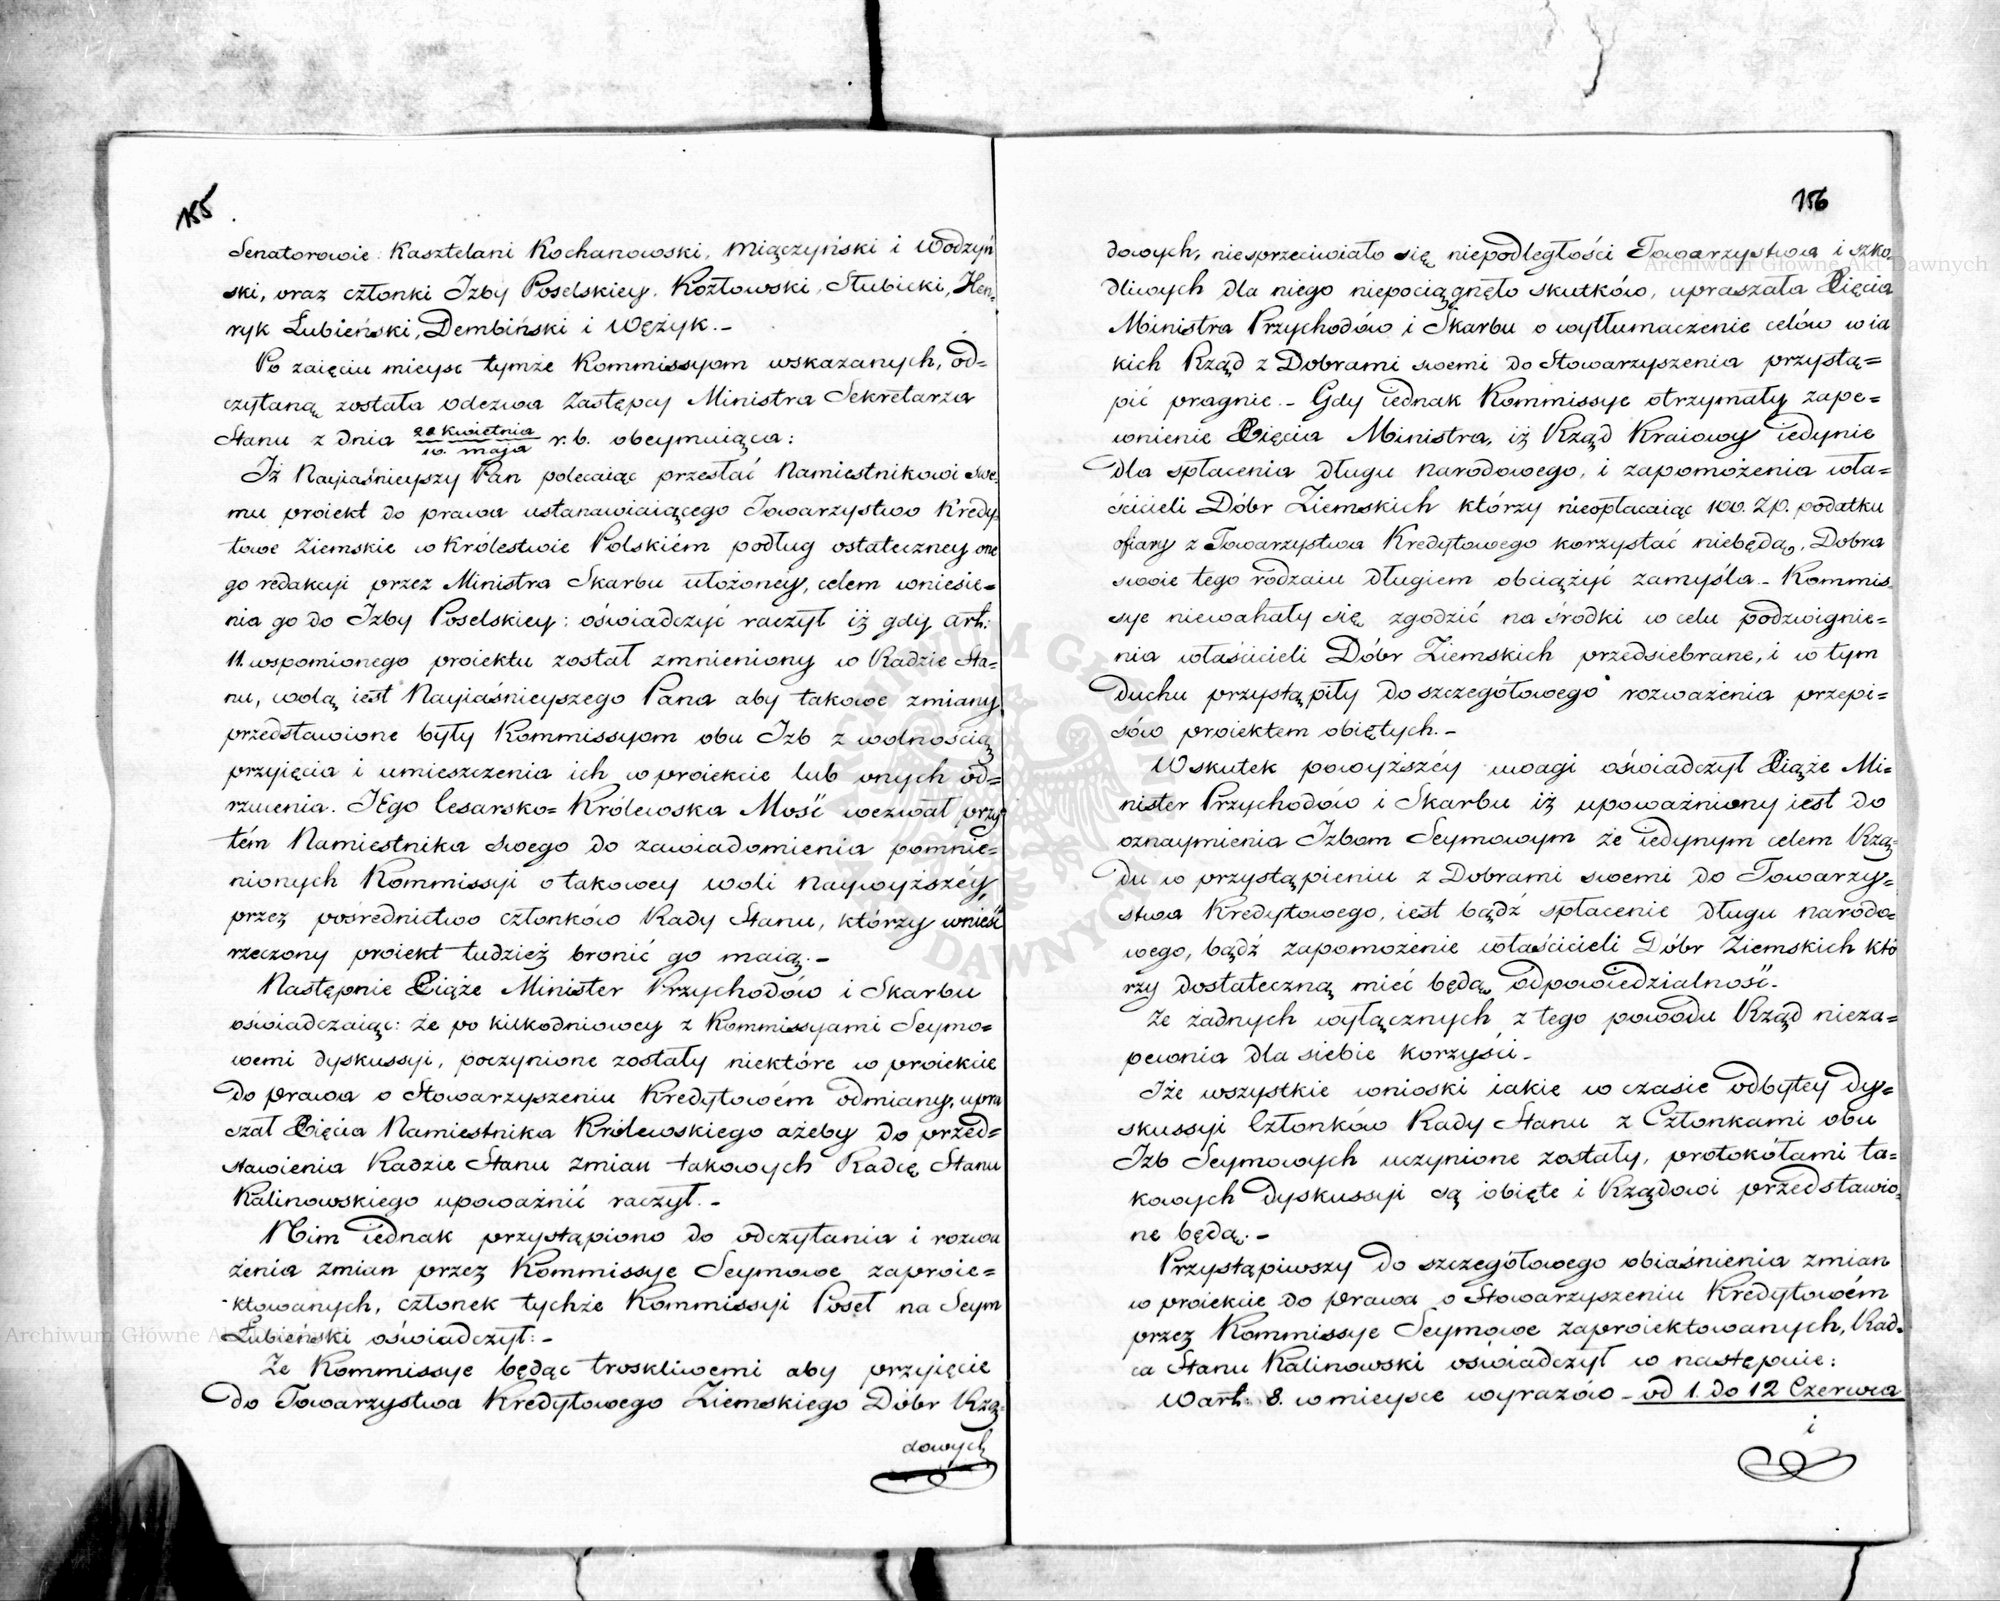 155
Senatorowie: Kasztelani Kochanowski, Miączyński i Wodzyń
ski, oraz członki Izby Poselskiey, Kozłowski, Słubicki, Hen-
ryk Łubieński, Dembiński i Wężyk.-
Po zaięciu mieysc tymże Kommissyom wskazanych, od=
czytaną została odezwa Zastępcy Ministra Sekretarza
Stanu z dnia 28 kwietnia / 10. maja r. b. obeymuiąca:
Iż Nayiaśnieyszy Pan polecaiąc przesłać Namiestnikowi swe-
mu proiekt do prawa ustanawiaiącego Towarzystwo Kredy-
towe Ziemskie w Królestwie Polskiém podług ostateczney one
go redakcyi przez Ministra Skarbu ułożoney, celem wniesie=
nia go do Izby Poselskiey: oświadczyć raczył iż gdy art:
11. wspomionego proiektu został zmnieniony w Radzie Sta-
nu, wolą iest Nayiaśnieyszego Pana aby takowe zmiany
przedstawione były Kommissyom obu Izb z wolnością
przyięcia i umieszczenia ich w proiekcie lub onych od=
rzucenia. JEgo Cesarsko=Królewska Mość wezwał przy
tém Namiestnika swego do zawiadomienia pomnie=
nionych Kommissyi o takowey woli Naywyższéy,
przez pośrednictwo członków Rady Stanu, którzy wnieść
rzeczony proiekt tudzież bronić go maią.-
Następnie Xiąże Minister Przychodów i Skarbu
oświadczaiąc: że po kilkodniowey z Kommissyami Seymo=
wemi dyskussyi, poczynione zostały niektóre w proiekcie
do prawa o Stowarzyszeniu Kredytowém odmiany, upra
szał Xięcia Namiestnika Królewskiego ażeby do przed=
stawienia Radzie Stanu zmian takowych Radcę Stanu
Kalinowskiego upoważnić raczył.-
Nim iednak przystąpiono do odczytania i rozwa
żenia zmian przez Kommissye Seymowe zaproie=
ktowanych, członek tychże Kommissyi Poseł na Seym
Łubieński oświadczył:-
Że Kommissye będąc troskliwemi aby przyięcie
do Towarzystwa Kredytowego Ziemskiego Dóbr Rzą-
dowych
156
dowych, niesprzeciwiało się niepodległości Towarzystwa i szko-
dliwych dla niego niepociągnęło skutków, upraszała Xięcia
Ministra Przychodów i Skarbu o wytłumaczenie celów w ia
kich Rząd z Dobrami swemi do Stowarzyszenia przystą=
pić pragnie.- Gdy iednak Kommissye otrzymały zape=
wnienie Xięcia Ministra, iż Rząd Kraiowy iedynie
dla spłacenia długu narodowego, i zapomożenia wła=
ścicieli Dóbr Ziemskich którzy nieopłacaiąc 100. Zp. podatku
ofiary z Towarzystwa Kredytowego korzystać niebędą, Dobra
swoie tego rodzaiu długiem obciążyć zamyśla.- Kommis-
sye niewahały się zgodzić na środki w celu podzwignie=
nia właścicieli Dóbr Ziemskich przedsiebrane, i w tym
duchu przystąpiły do szczegółowego rozważenia przepi=
sów proiektem obiętych.-
Wskutek powyższéy uwagi oświadczył Xiąże Mi=
nister Przychodów i Skarbu iż upoważniony iest do
oznaymienia Izbom Seymowym że iedynym celem Rzą-
du w przystąpieniu z Dobrami swemi do Towarzy=
stwa Kredytowego, iest bądź spłacenie długu narodo=
wego, bądź zapomożenie właścicieli Dóbr Ziemskich któ
rzy dostateczną mieć będą odpowiedzialność.-
Że żadnych wyłącznych z tego powodu Rząd nieza=
pewnia dla siebie korzyści.-
Iże wszystkie wnioski iakie w czasie odbytey dy=
skussyi Członków Rady Stanu z Członkami obu
Izb Seymowych uczynione zostały, protokółami ta=
kowych dyskussyi są obięte i Rządowi przedstawio-
ne będą.-
Przystąpiwszy do szczegółowego obiaśnienia zmian
w proiekcie do prawa o Stowarzyszeniu Kredytowém
przez Kommissye Seymowe zaproiektowanych, Rad-
ca Stanu Kalinowski oświadczył co następuie:
W art: 8. w mieysce wyrazów - od 1. do 12 Czerwca
i
Archiwum Główne Akt Dawnych